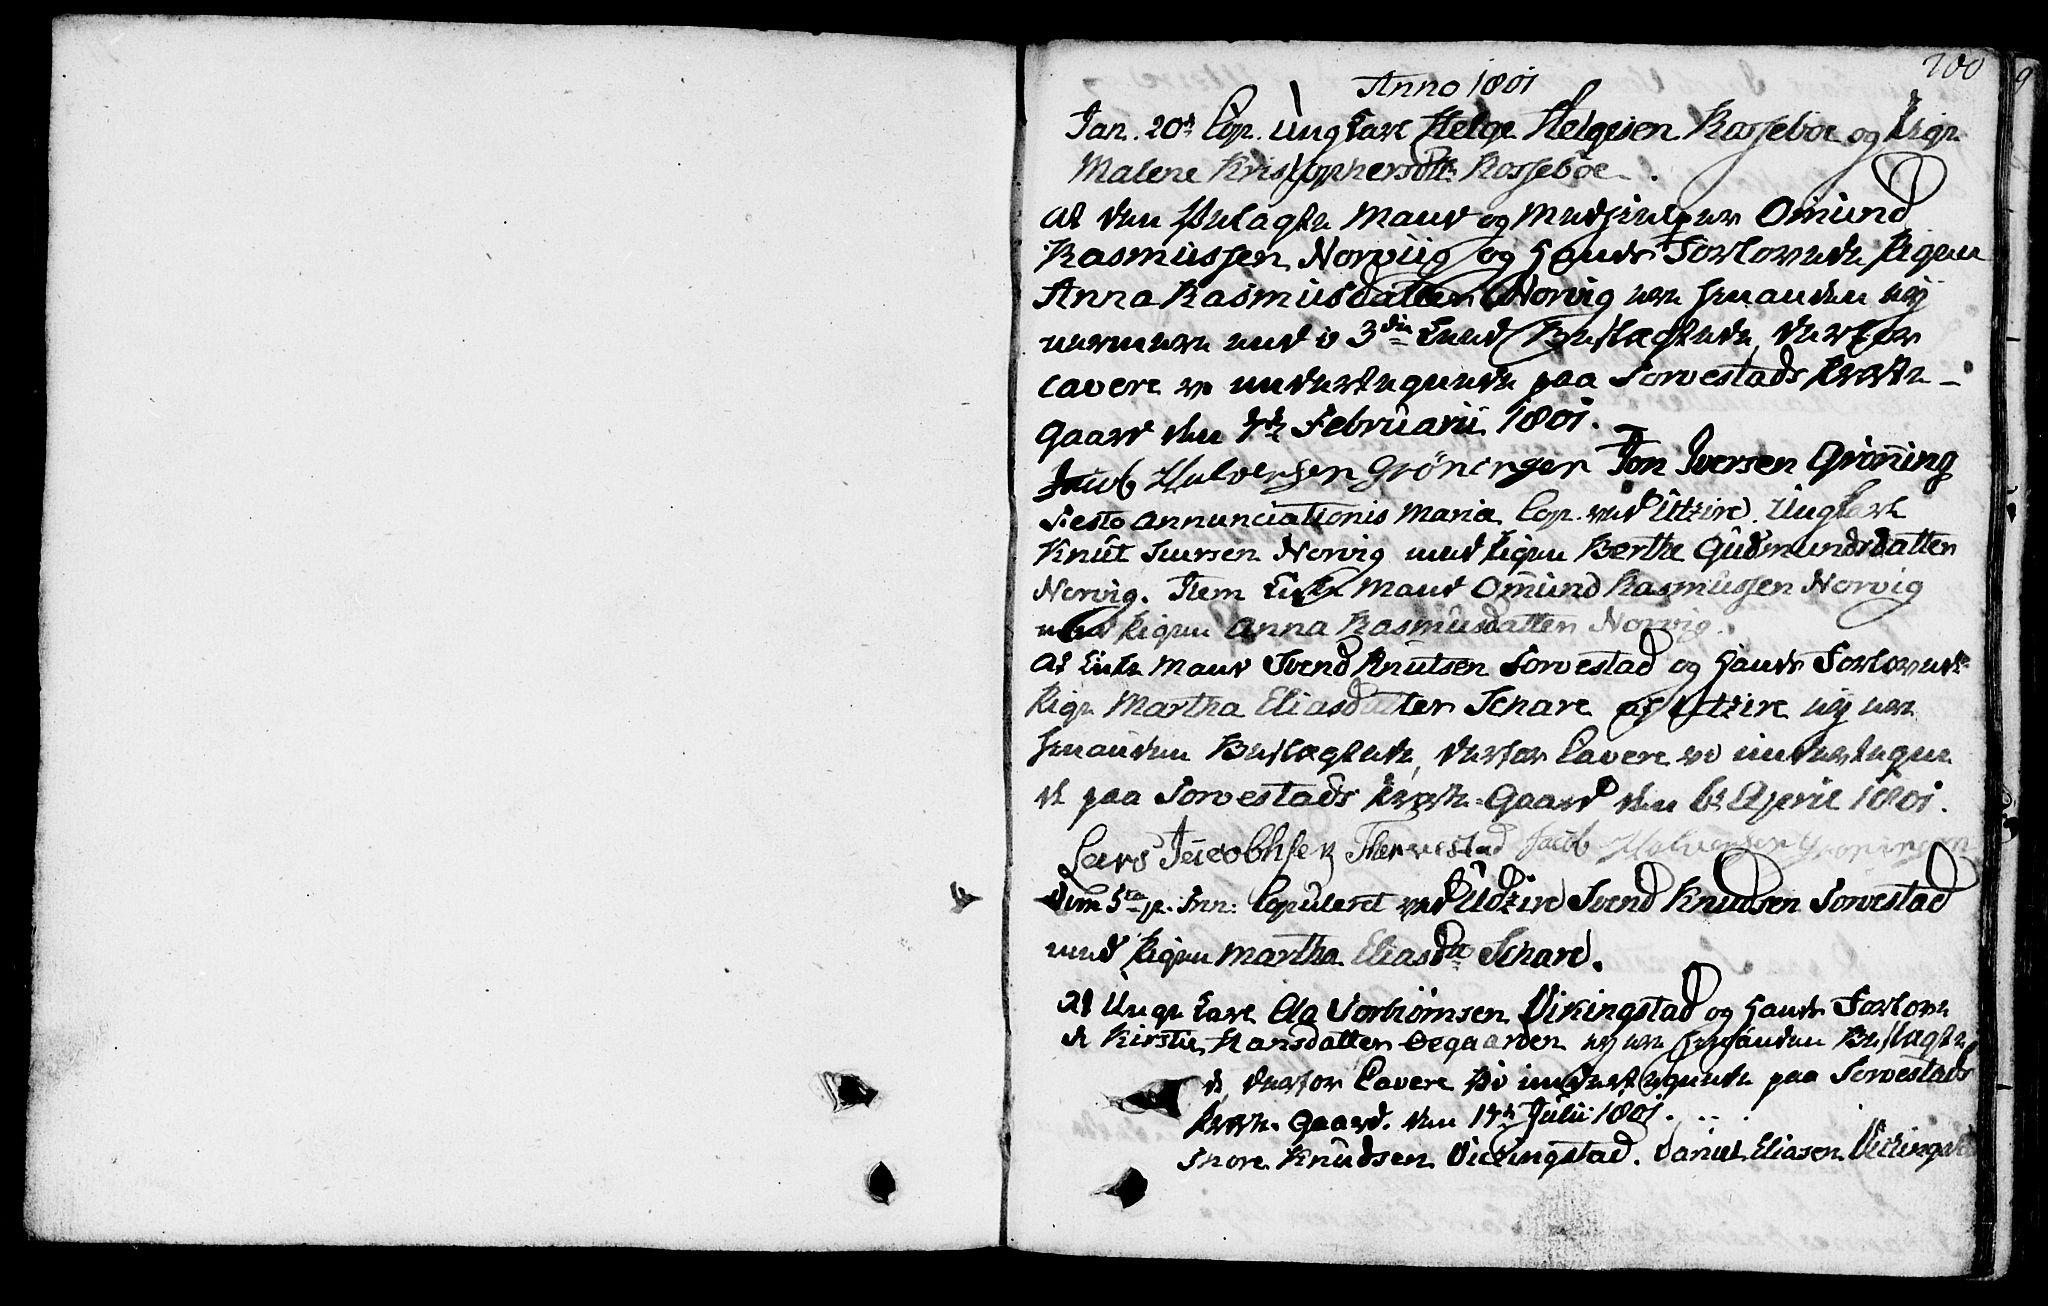 200
Anno 1801
Jan. 20de Cop. Ungkarl Helge Helgesen Rossebøe og Pige
Malene Kristophersdtr Rossebøe.
At den Ærlagte Mand og Medhielper Omund
Rasmussen Norviig og Hands Forlovede Pigen
Anna Rasmusdatter Norvig ere hinanden ej
nærmere end i 3die Leed Beslægtede, derfor
cavere vi undertegnede paa Torvestads Præste-
gaard den 7de Februarii 1801.
Jacob Halversen Grøninger Jon Iversen Grøning
Festo Annunciationis Mariæ Cop. ved Utzire Ungkarl
Knut Iversen Norvig med Pigen Berthe Gudmundsdatter
Norvig. Item Enke Mand Omund Rasmussen Norvig
med Pigen Anna Rasmusdatter Norvig.
At Enke Mand Svend Knutsen Torvestad og Hands Forlovede
Pige Martha Eliasdatter Schare af Utzire ej ere
hinanden Beslægtede, derfor Cavere vi undertegne
de paa Torvestads Præste-Gaard den 6te April 1801.
Lars Jacobhsen Thorvestad Jacob Halversen Groningen
Dom 5ta p. Trin: Copuleret ved Udzire Svend Knudsen Torvestad
med Pigen Martha Eliasdtr Schare.
At Unge Karl Ola Torbiørnsen Vikingstad og Hands Forlove
de Kirstie Hansdatter Øegaarden ej ere hinanden Beslægte
de, derfor Cavere Vi undertegnede paa Torvestads
Præste-Gaard. den 17de Julii 1801.
Thore Knudsen Vickingstad. Daniel Eliasen Vickingstad